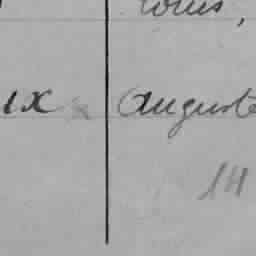 Louis,
ux Auguste
14